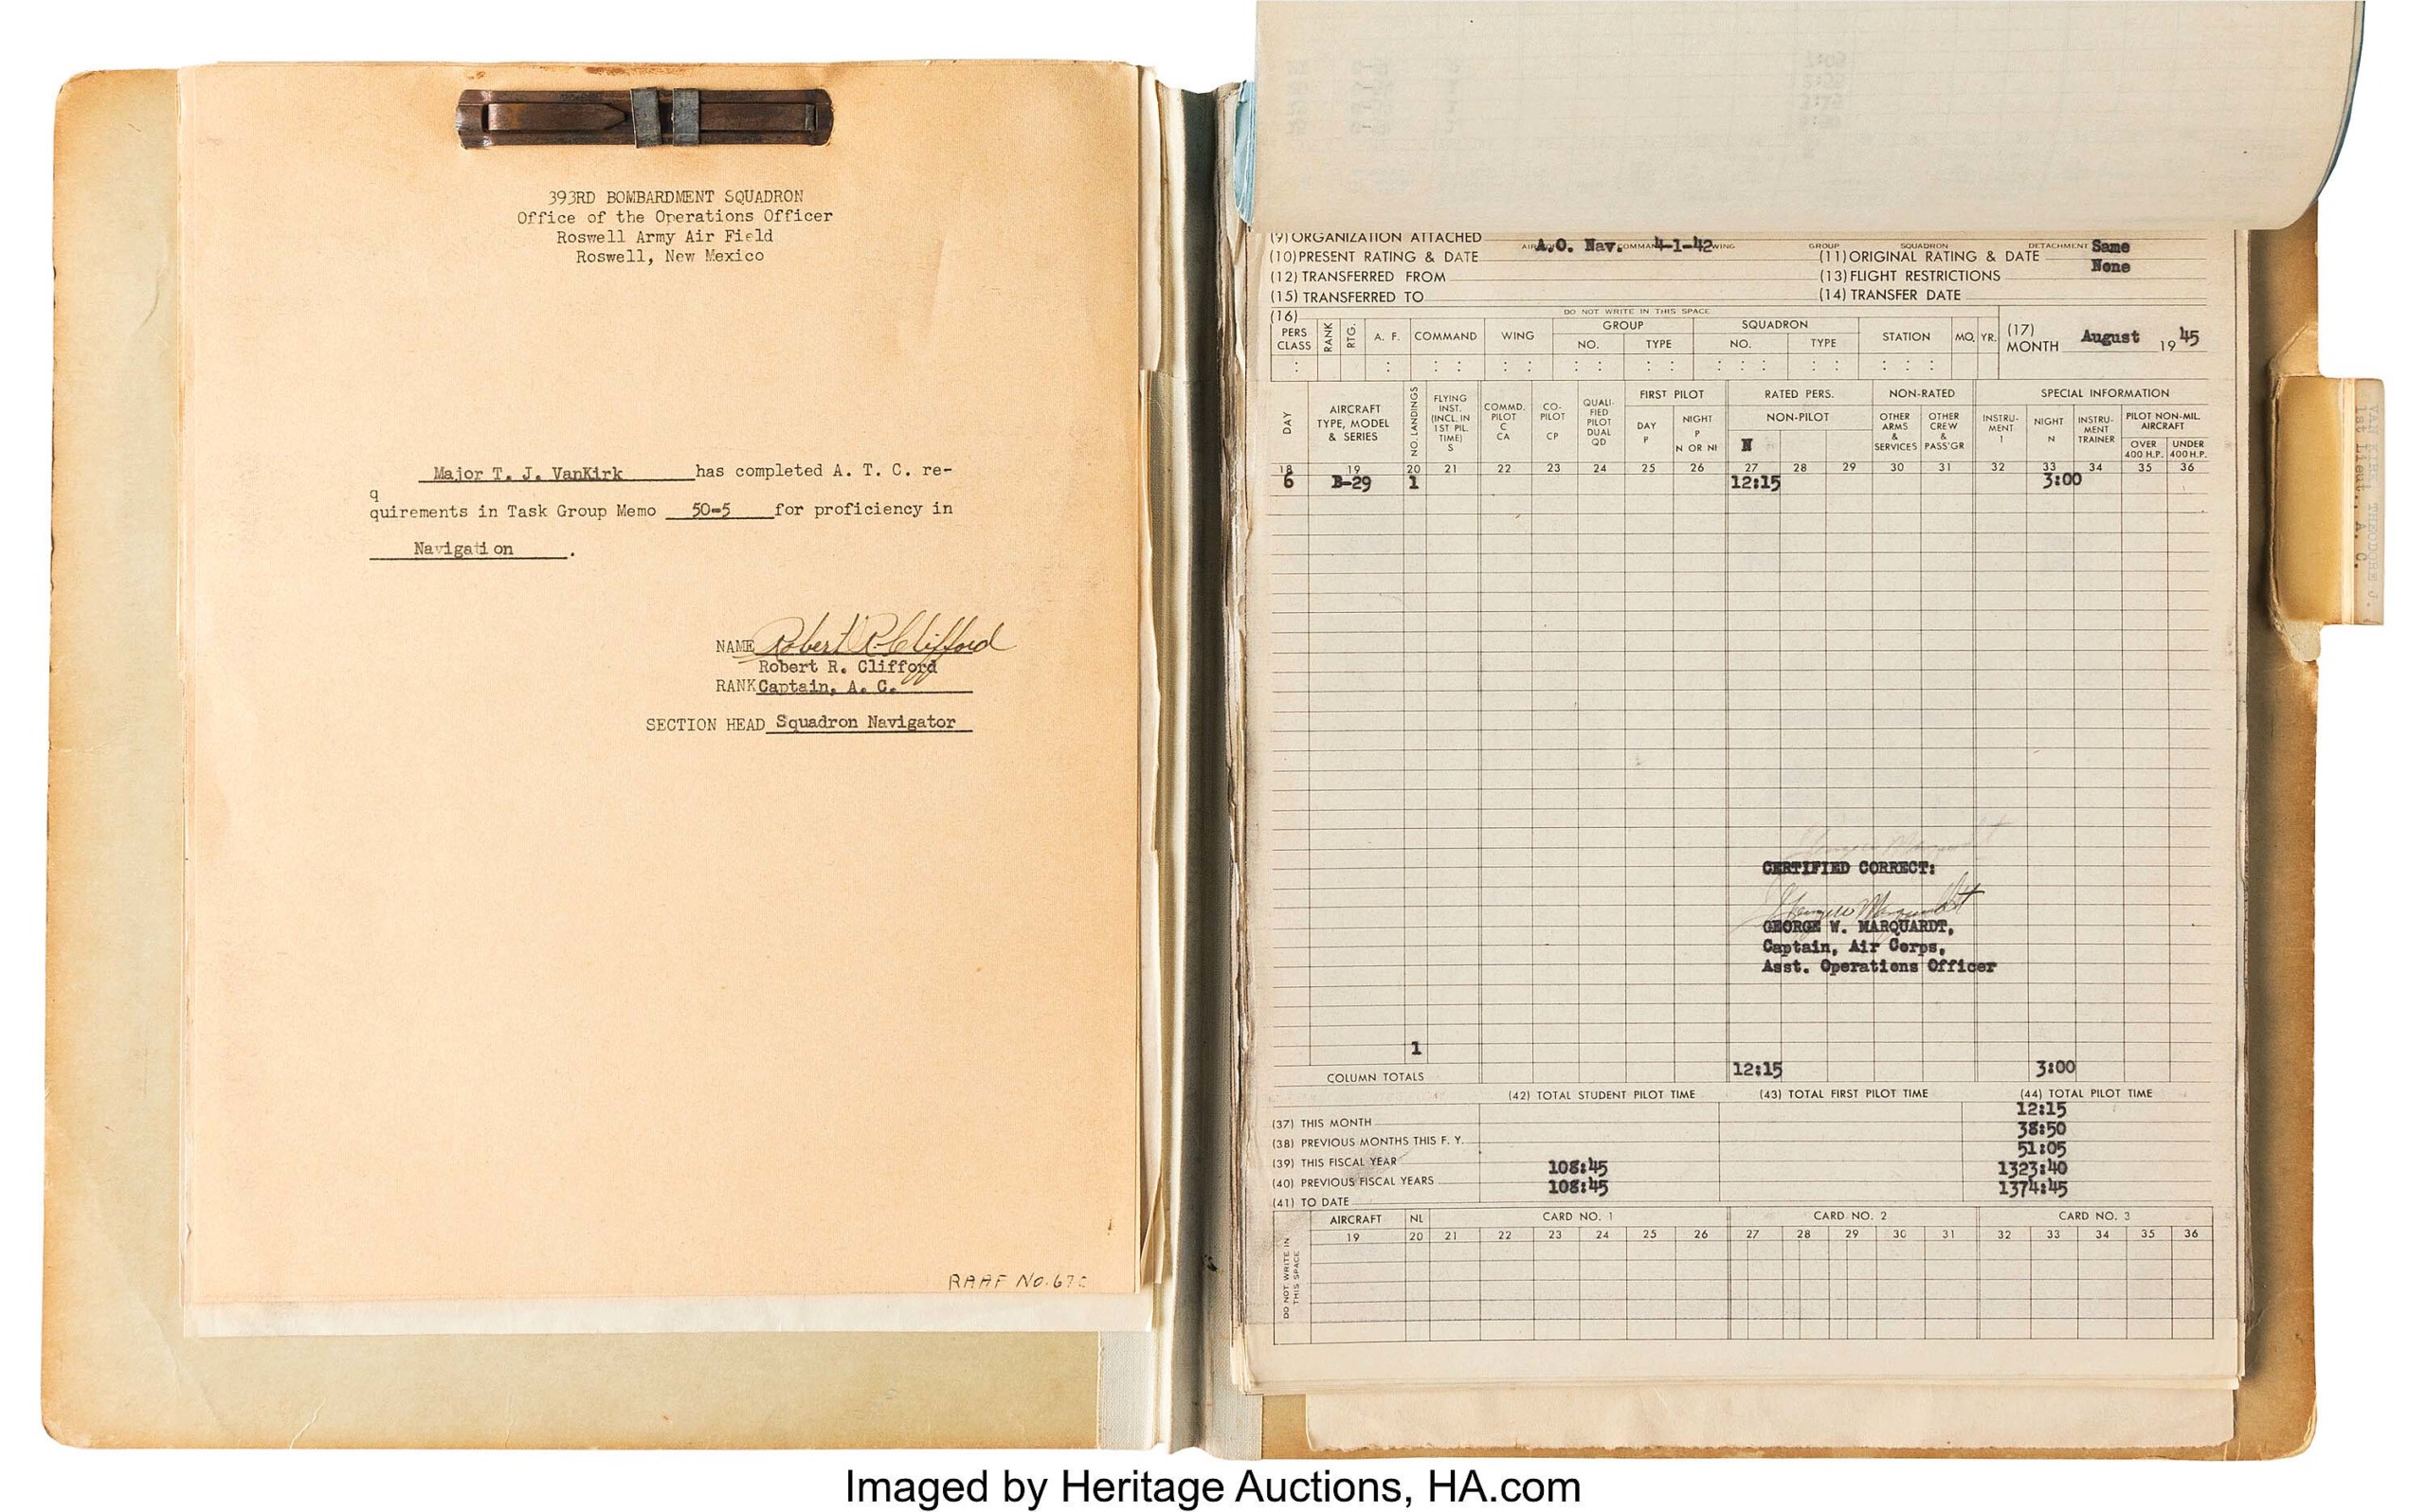 393RD BOMBARDMENT SQUADRON
Office of the Operations Officer
Roswell Army Air Field
Roswell, New Mexico
Major T. J. VanKirk has completed A. T. C. re-
q
quirements in Task Group Memo 50-5 for proficiency in
Navigation.
NAME Robert R. Clifford
Robert R. Clifford
RANK Captain, A. C.
SECTION HEAD Squadron Navigator
RAAF No. 67
(9) ORGANIZATION ATTACHED
AIR COMMAND WING GROUP SQUADRON DETACHMENT
A.O. Nav. 4-1-42 Same
(10) PRESENT RATING & DATE (11) ORIGINAL RATING & DATE
None
(12) TRANSFERRED FROM (13) FLIGHT RESTRICTIONS
(15) TRANSFERRED TO (14) TRANSFER DATE
(16) DO NOT WRITE IN THIS SPACE
PERS CLASS RANK RTG. A. F. COMMAND WING GROUP NO. TYPE SQUADRON NO. TYPE STATION MO. YR. (17) MONTH August 19 45
DAY AIRCRAFT TYPE, MODEL & SERIES NO. LANDINGS FLYING INST. (INCL. IN 1ST PIL. TIME) S COMMD. PILOT C CA CO-PILOT CP QUALI-FIED PILOT DUAL QD FIRST PILOT DAY P NIGHT P N OR NI RATED PERS. NON-PILOT N NON-RATED OTHER ARMS & SERVICES OTHER CREW & PASS'GR SPECIAL INFORMATION INSTRU-MENT I NIGHT N INSTRU-MENT TRAINER PILOT NON-MIL. AIRCRAFT OVER 400 H.P. UNDER 400 H.P.
18 19 20 21 22 23 24 25 26 27 28 29 30 31 32 33 34 35 36
6 B-29 1 12:15 3:00
CERTIFIED CORRECT:
George W Marquardt
GEORGE W. MARQUARDT,
Captain, Air Corps,
Asst. Operations Officer
1
COLUMN TOTALS 12:15 3:00
(42) TOTAL STUDENT PILOT TIME (43) TOTAL FIRST PILOT TIME (44) TOTAL PILOT TIME
(37) THIS MONTH 12:15
(38) PREVIOUS MONTHS THIS F. Y. 38:50
(39) THIS FISCAL YEAR 51:05
(40) PREVIOUS FISCAL YEARS 108:45 1323:40
(41) TO DATE 108:45 1374:45
DO NOT WRITE IN THIS SPACE
AIRCRAFT NL CARD NO. 1 CARD NO. 2 CARD NO. 3
19 20 21 22 23 24 25 26 27 28 29 30 31 32 33 34 35 36
VAN KIRK, THEODORE J.
1st Lieut., A. C.
Imaged by Heritage Auctions, HA.com